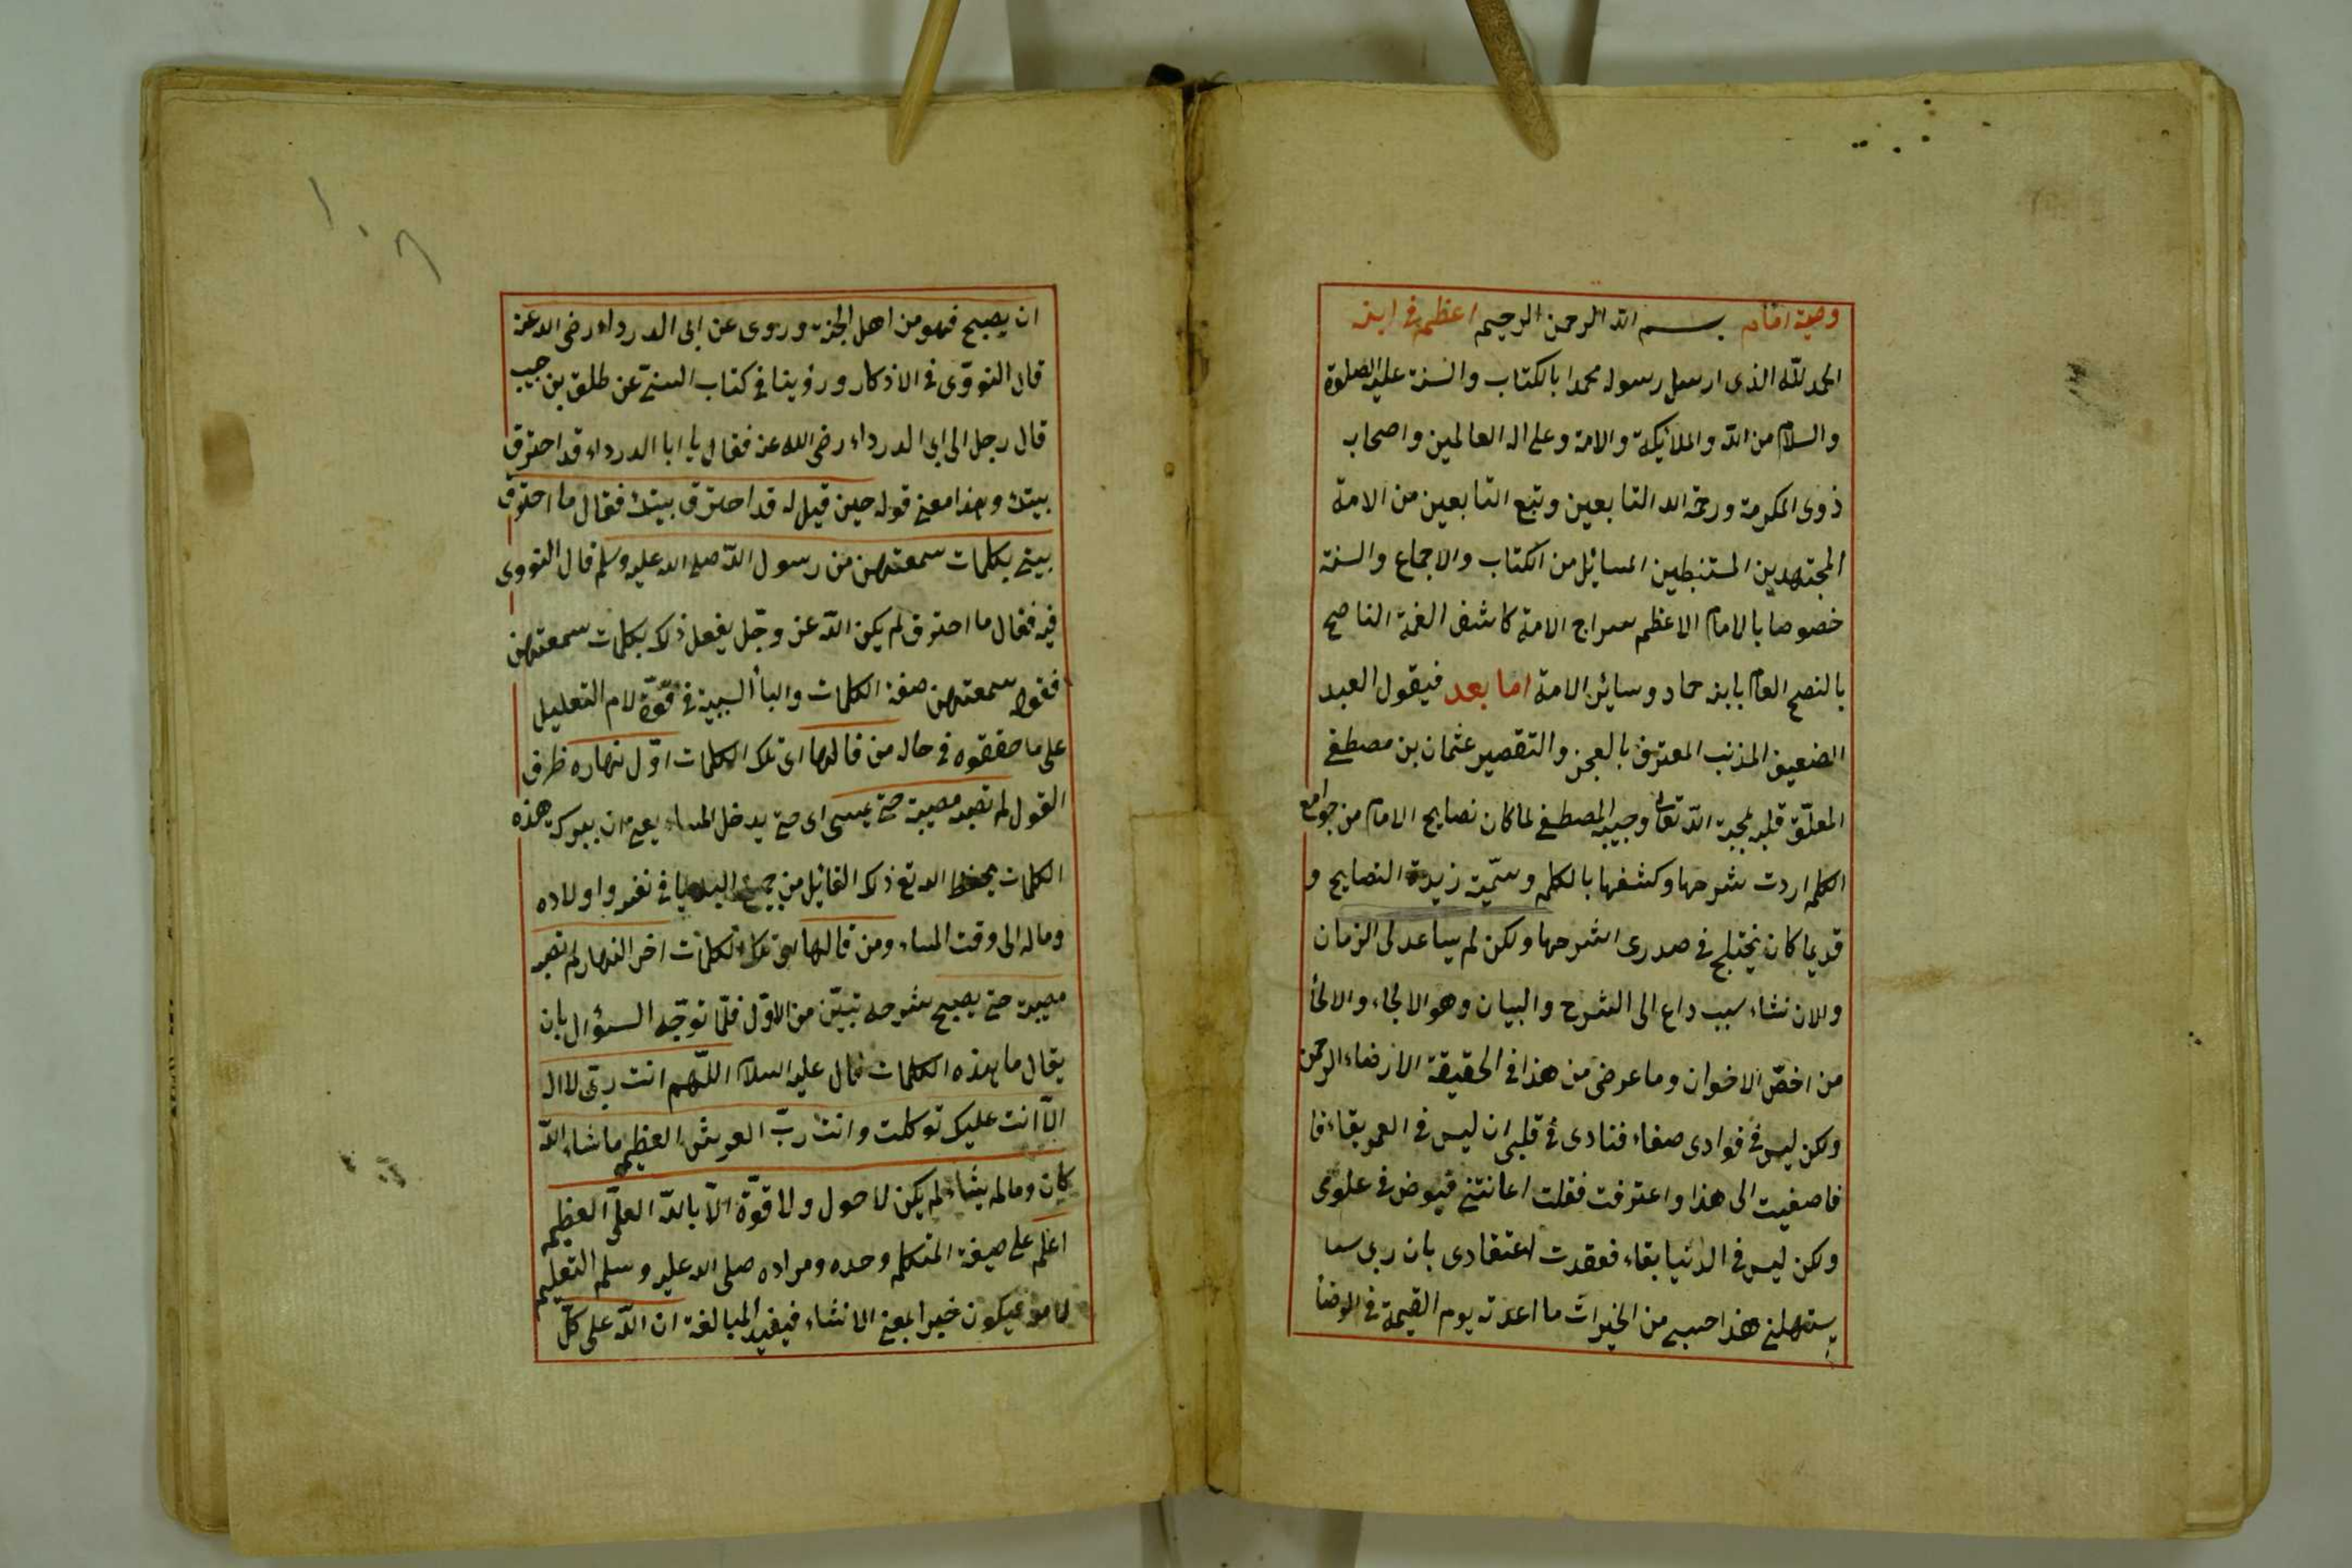 وصية امام بسم الله الرحمن الرحيم اعظم في ابنه
الحمد لله الذى ارسل رسوله محمدا بالكتاب والسنة عليه الصلوة
والسلام من الله والملائيكة والامة وعلى اله العالمين واصحاب
ذوى المكرمة ورحمة الله التابعين وتبع التابعين من الامة
المجتهدين المستنبطين المسائل من الكتاب والاجماع والسنة
خصوصا بالامام الاعظم سراج الامة كاشف الغمة الناصح
بالنصح العام بابنه حماد وسائر الامة اما بعد فيقول العبد
الضعيف المذنب المعترف بالعجز والتقصير عثمان بن مصطفى
المعلق قلبه بمحبة الله تعالى وحبيبه المصطفى لما كان نصايح الامام من جوامع
الكلم اردت شرحها وكشفها بالكلم وسميته زبدة النصايح و
قديما كان يختلج في صدرى اشرحها ولكن لم يساعد لى الزمان
والان نشاء سبب داع الى الشرح والبيان وهو الالجاء والالجأ
من اخص الاخوان وما عرضى من هذا في الحقيقة الا رضاء الرحمن
ولكن ليس في فوادى صفاء فنادى في قلبى ان ليس في العمر بقاء فا
فاصغيت الى هذا واعترفت فقلت اعانتنى فيوض في علومى
ولكن ليس في الدنيا بقاء فعقدت اعتقادى بان ربى سا
يستهلنى هذا حسبى من الخيرات ما اعدت يوم القيمة في
١٠٦
ان يصبح فهو من اهل الجنة وروى عن ابى الدرداء رضى الله عنه
قال النووى في الاذكار وروينا في كتاب السنى عن طلق بن حبيب
قال رجل الى ابى الدرداء رضى الله عنه فقال يا ابا الدرداء قد احترق
بيتك وهذا معنى قوله حين قيل له قد احترق بيتك فقال ما احترق
بيتى بكلمات سمعتهن من رسول الله صلى الله عليه وسلم قال النووى
فيه فقال ما احترق لم يكن الله عز وجل يفعل ذلك بكلمات سمعتهن
فقوله سمعتهن صفة الكلمات والبأ السببية في قوة لام التعليل
على ما حققوه في حاله من قالها اى تلك الكلمات اول نهاره ظرف
القول لم تصبه مصيبة حتى يمسى اى حتى يدخل المساء يعنى ان ببركة هذه
الكلمات يحفظ الله تع ذلك القائل من جميع البلايا في نفسه واولاده
وماله الى وقت المساء ومن قالها اى تلك الكلمات اخر النهار لم تصبه
مصيبة حتى يصبح شرحه تبين من الاول فلما توجه السؤال بان
يقال ما هذه الكلمات فقال عليه السلام اللهم انت ربى لا اله
الا انت عليك توكلت وانت رب العرش العظيم ما شاء الله
كان وما لم يشاء لم يكن لا حول ولا قوة الا بالله العلى العظيم
اعلم على صيغة المتكلم وحده ومراده صلى الله عليه وسلم التعليم
لا فيكون خبرا بمعنى الانشاء فيفيد المبالغة ان الله على كل